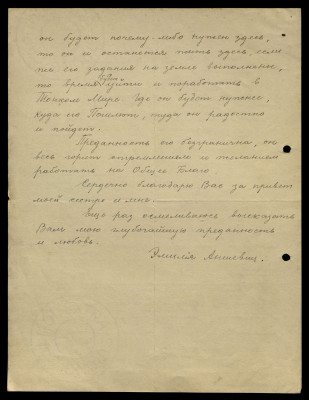 он будет почему-либо нужен здесь,
то он и останется жить здесь, если
же его задания на земле выполнены,
то время уйти и поработать в
Тонком Мире. Где он будет нужнее,
куда его Пошлют, туда он радостно
и пойдет.
Преданность его безгранична, он
весь горит стремлением и желанием
работать на Общее Благо.
Сердечно благодарю Вас за привет
моей сестре и мне.
Еще раз осмеливаюсь высказать
Вам мою глубочайшую преданность
и любовь.
Эмилія